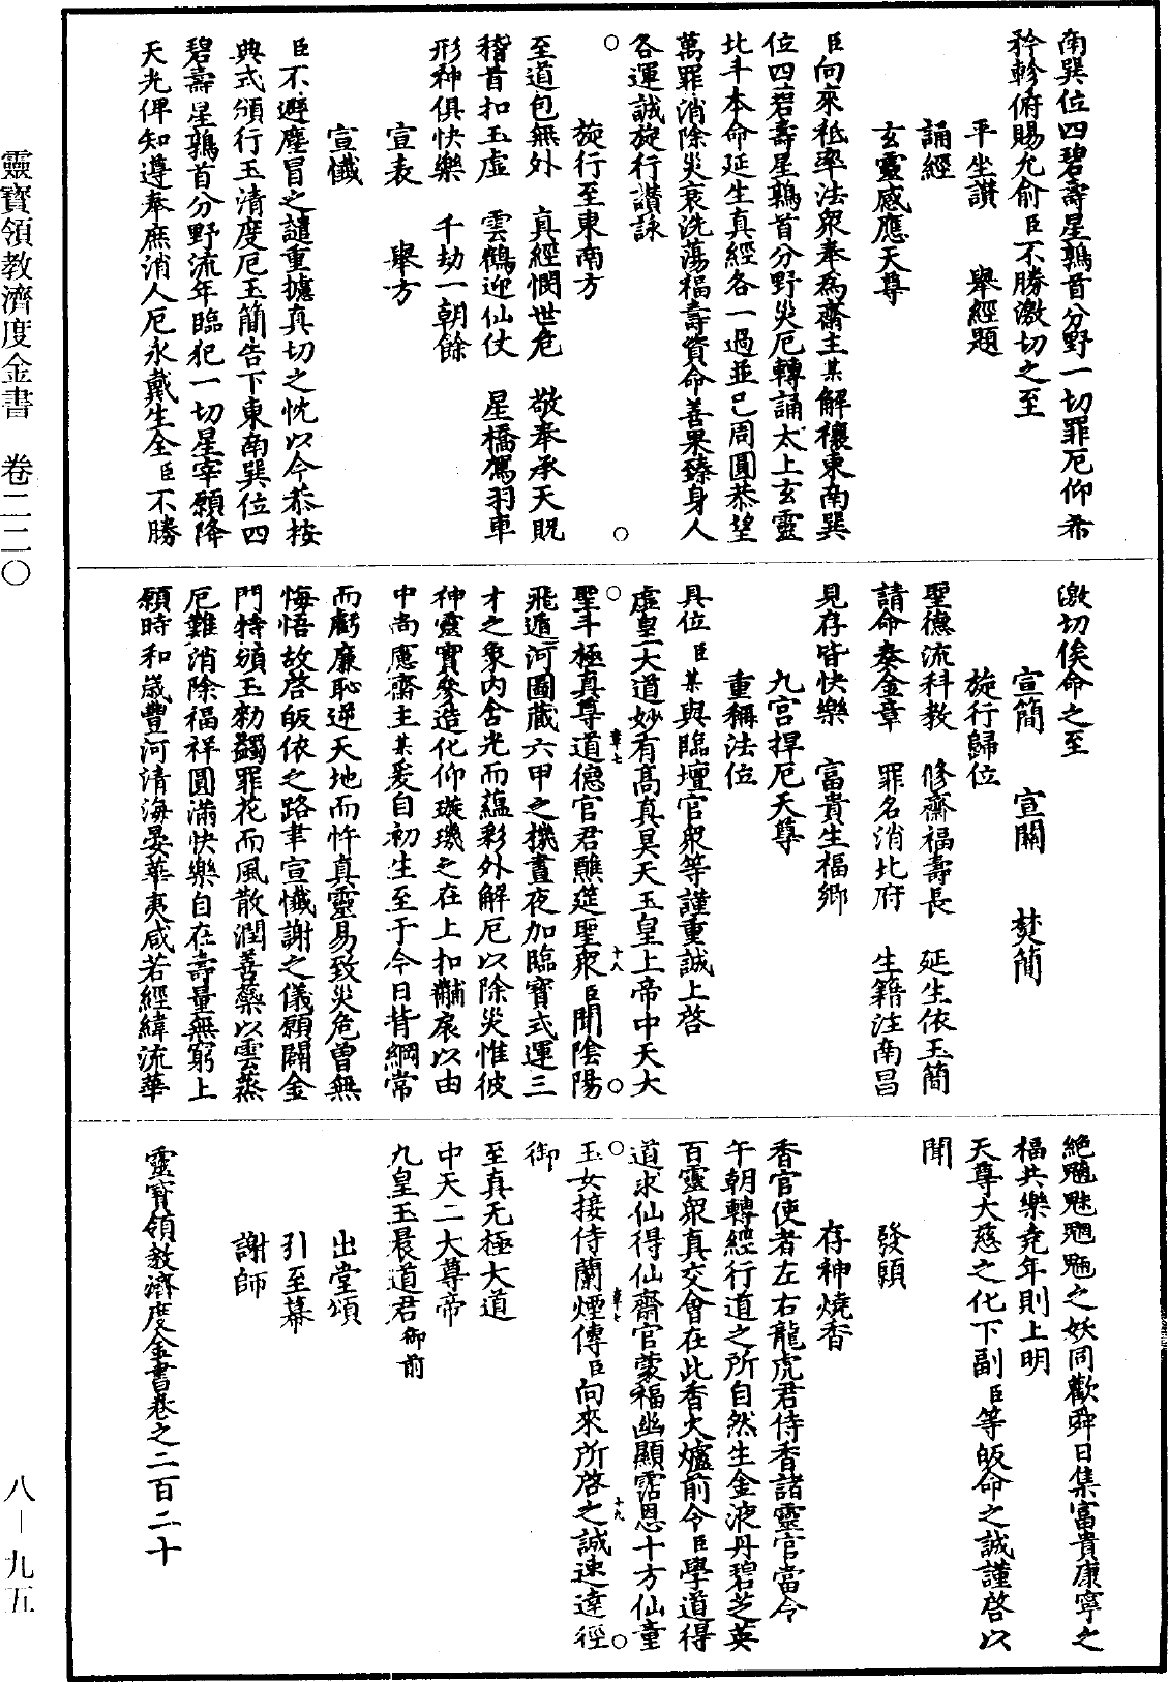 南巽位四碧壽星鶉首分野一切罪厄仰希
矜軫俯賜允俞臣不勝激切之至
平坐讚　舉經題
誦經
玄靈感應天尊
臣向來祗率法衆奉爲齋主某解禳東南巽
位四碧壽星鶉首分野災厄轉誦太上玄靈
北斗本命延生真經各一過並已周圓恭望
萬罪消除災衰洗蕩福壽資命善果臻身人
各運誠旋行讚詠
旋行至東南方
至道包無外　真經憫世危　敬奉承天貺
稽首扣玉虛　雲鶴迎仙仗　星橋駕羽車
形神俱快樂　千劫一朝餘
宣表　舉方
宣懺
臣不避塵冒之譴重攄真切之忱以今恭按
典式頒行玉清度厄玉簡告下東南巽位四
碧壽星鶉首分野流年臨犯一切星宰願降
天光俾知遵奉庶消人厄永戴生全臣不勝
激切俟命之至
宣簡　宣關　焚簡
旋行歸位
聖德流科教　修齋福壽長　延生依玉簡
請命奏金章　罪名消北府　生籍注南昌
見存皆快樂　富貴生福鄉
九宮捍厄天尊
重稱法位
具位臣某與臨壇官衆等謹重誠上啓
虛皇大道妙有高真昊天玉皇上帝中天大
聖斗極真尊道德官君醮筵聖衆臣聞陰陽
飛遁河圖藏六甲之機晝夜加臨寶式運三
才之象內含光而蘊彩外解厄以除災惟彼
神靈實參造化仰璇璣之在上扣黼扆以由
中尚慮齋主某爰自初生至于今日背綱常
而虧廉恥逆天地而忤真靈易致災危曾無
悔悟故啓皈依之路聿宣懺謝之儀願闢金
門特頒玉勑蠲罪花而風散潤善蘂以雲蒸
厄難消除福祥圓滿快樂自在壽量無窮上
願時和歲豐河清海晏華夷咸若經緯流華
絶魑魅魍魎之妖同歡舜日集富貴康寧之
福共樂堯年則上明
天尊大慈之化下副臣等皈命之誠謹啓以
聞
發願
存神燒香
香官使者左右龍虎君侍香諸靈官當令
午朝轉經行道之所自然生金液丹碧芝英
百靈衆真交會在此香火爐前令臣學道得
道求仙得仙齋官蒙福幽顯霑恩十方仙童
玉女接侍蘭煙傳臣向來所啓之誠速達徑
御
至真无極大道
中天二大尊帝
九皇玉晨道君御前
出堂頌
引至幕
謝師
靈寶領教濟度金書卷之二百二十
靈寶領教濟度金書　卷二二〇
八—九五